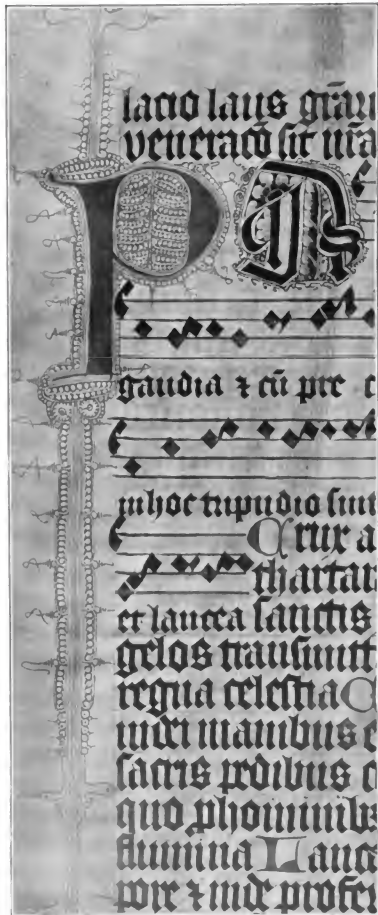 lacio laus grāu
veneracō sit nr̄a
P
gaudia ⁊ cū pre c
in hoc tripudio sint
Crux a
thartar
et lancea sanctis
gelos transmitt
regna celestia C
manibus e
sacris pedibus c
quo phominibs
flumina Lance
pore ⁊ inde profer